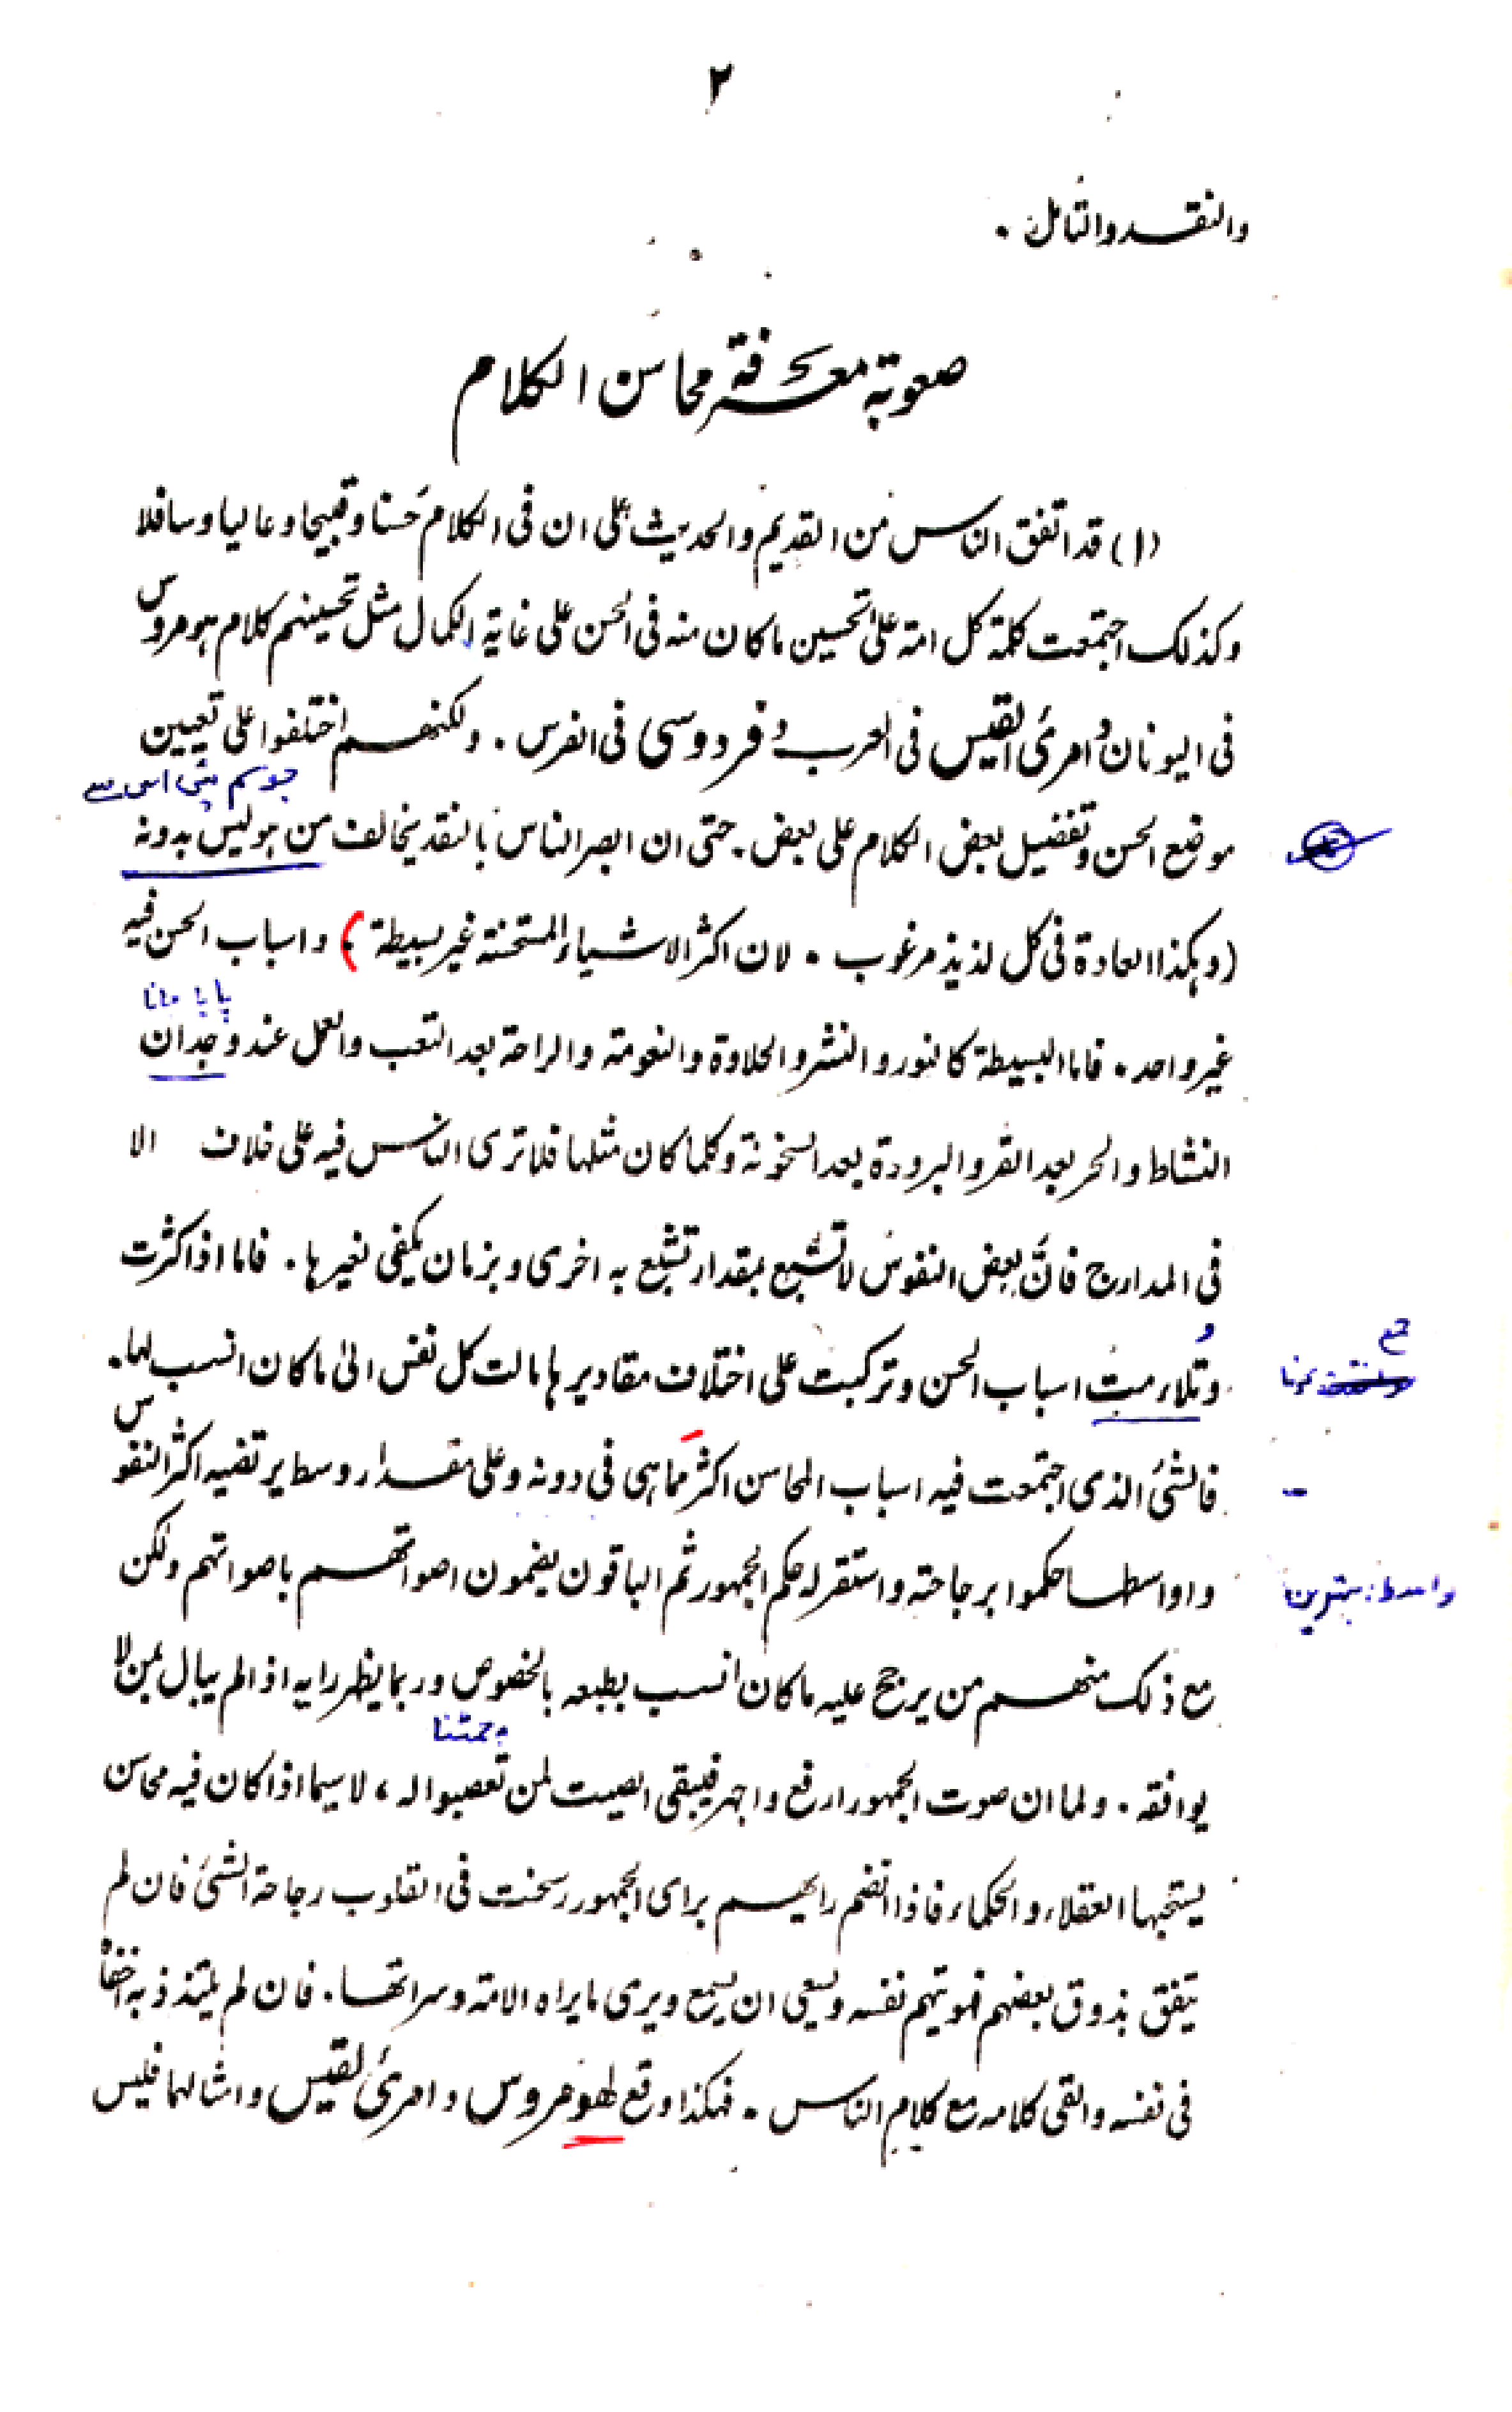 ٢
والنقد والتأمل .
صعوبة معرفة محاسن الكلام
(١) قد اتفق الناس من القديم والحديث على ان فى الكلام حَسنا وقبيحا وعاليا وسافلا
وكذلك اجتمعت كلمة كل امة على تحسين ما كان منه فى الحسن على غاية الكمال مثل تحسينهم كلام هومروس
فى اليونان وامرئ القيس فى العرب وفردوسى فى الفرس . ولكنهم اختلفوا على تعيين
جو کم نہیں اس سے
موضع الحسن وتفضيل بعض الكلام على بعض . حتى ان ابصر الناس بالنقد يخالف من هو ليس بدونه
(وهكذا العادة فى كل لذيذ مرغوب . لان اكثر الاشياء المستحسنة غير بسيطة) واسباب الحسن فيه
پایا جانا
غير واحد . فاما البسيطة كالنور والنشر والحلاوة والنعومة والراحة بعد التعب والعمل عند وجدان
النشاط والحر بعد القر والبرودة بعد السخونة وكلما كان مثلها فلا ترى الناس فيه على خلاف الا
فى المدارج فانَّ بعض النفوس لا تشبع بمقدار تشبع به اخرى وبزمان يكفى لغيرها . فاما اذا كثرت
وتلاءمت اسباب الحسن وتركبت على اختلاف مقاديرها مالت كل نفس الىٰ ما كان انسب لها .
جمع ہونا
فالشئ الذى اجتمعت فيه اسباب المحاسن اكثر مما هى فى دونه وعلى مقدار وسط يرتضيه اكثر النفوس
واواسطها حكموا برجاحته واستقر له حكم الجمهور ثم الباقون يضمون اصواتهم باصواتهم ولكن
واسط : بہترین
مع ذلك منهم من يرجح عليه ما كان انسب بطبعه بالخصوص وربما يظهر رايه اذا لم يبال بمن لا
چمٹنا
يوافقه . ولما ان صوت الجمهور ارفع واجهر فيبقى الصيت لمن تعصبوا له ، لا سيما اذا كان فيه محاسن
يستحبها العقلاء والحكماء فاذا انضم رايهم براى الجمهور رسخت فى القلوب رجاحة الشئ فان لم
يتفق بذوق بعضهم فهو يتهم نفسه ويسعى ان يسمع ويرى ما يراه الامة وسراتها . فان لم يلتذ به اخفاه
فى نفسه والقى كلامه مع كلام الناس . فهكذا وقع لهومروس وامرئ القيس وامثالهما فليس